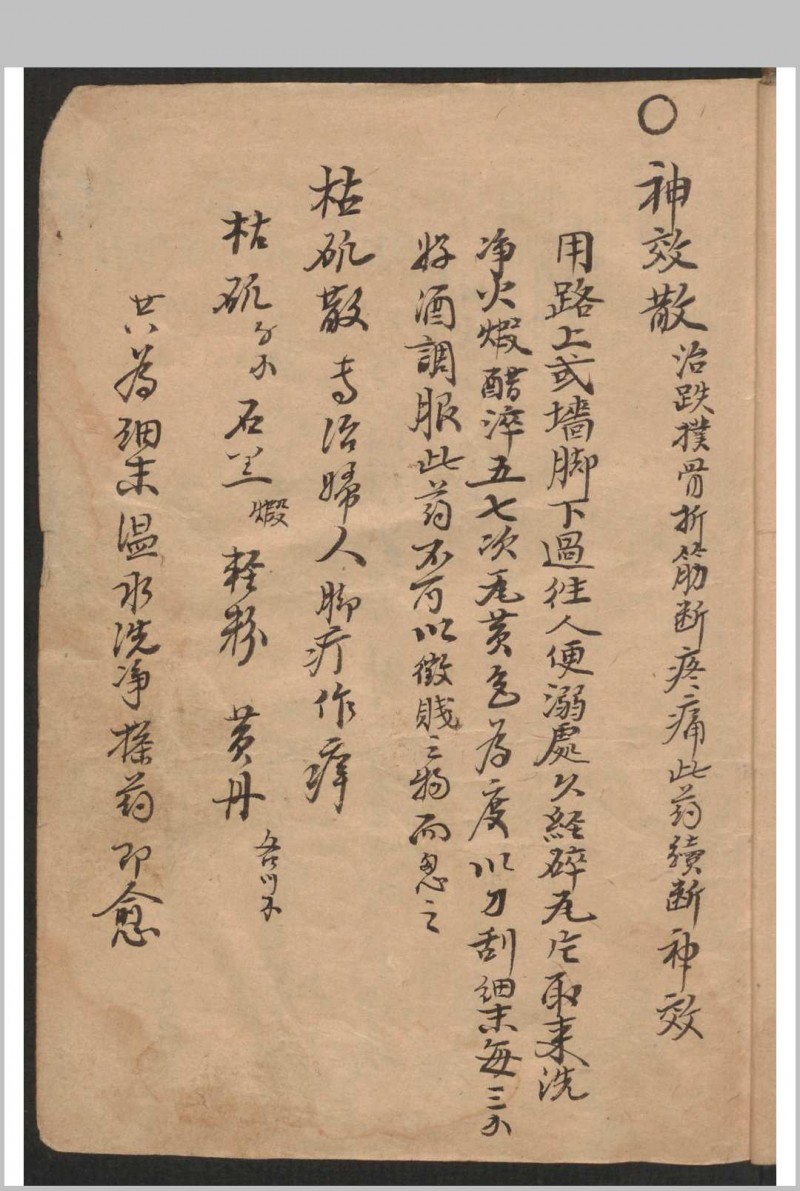 〇神效散 治跌撲骨折筋断疼痛此药續断神效
用路上或墻脚下過往人便溺處久経碎瓦片取来洗
净火煆醋淬五七次瓦黄色為度以刀刮細末每三小
好酒調服此药不可以微賤之物而忽之
枯矾散 专治婦人脚疔作痒
枯矾 石羔煆 軽粉 黄丹各
共為細末温水洗净搽药即愈